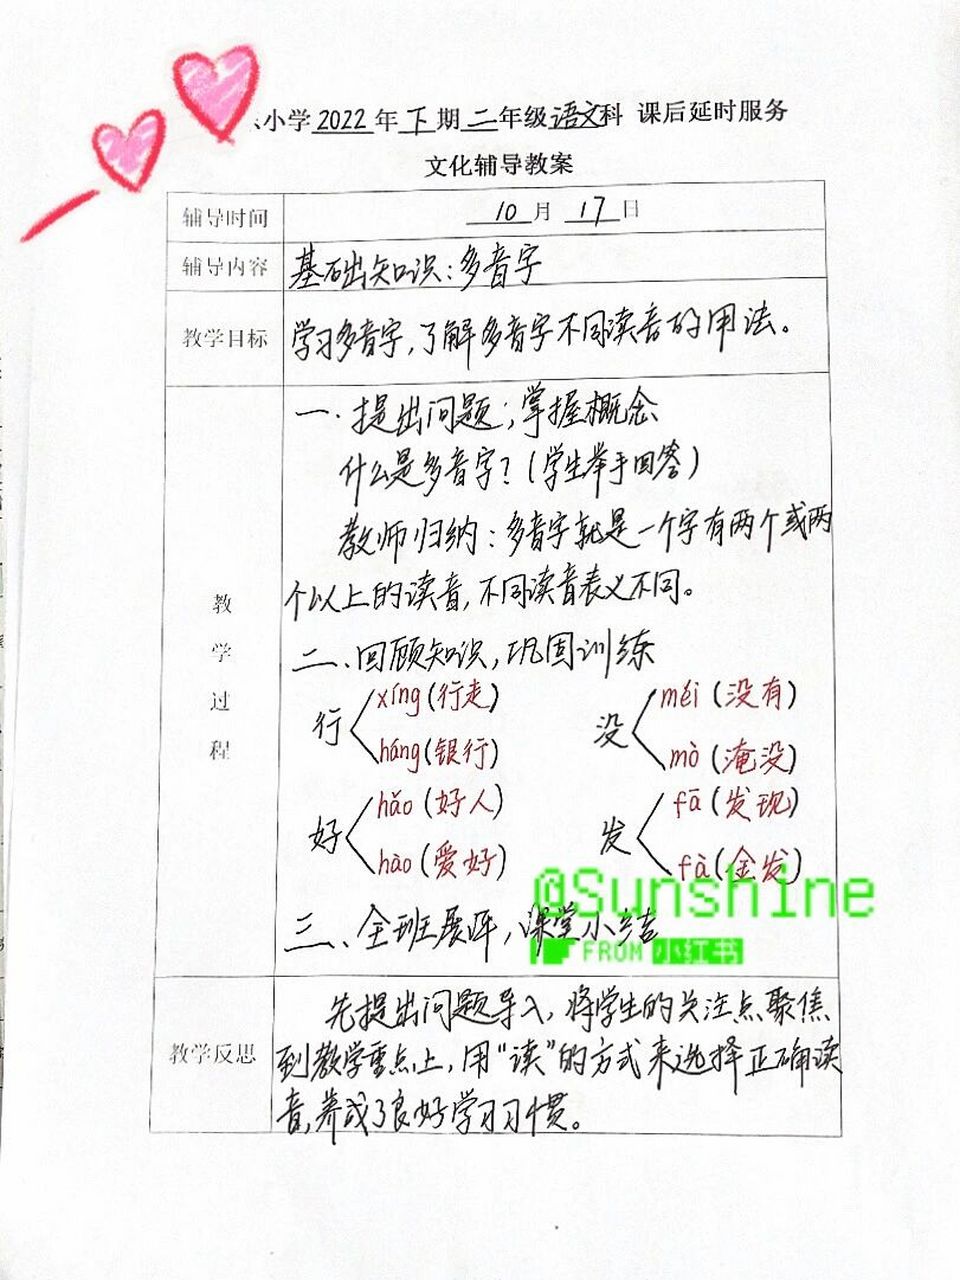 小学2022年下期二年级语文科 课后延时服务
文化辅导教案
辅导时间 10月17日
辅导内容 基础知识：多音字
教学目标 学习多音字，了解多音字不同读音的用法。
教学过程
一．提出问题，掌握概念
什么是多音字？（学生举手回答）
教师归纳：多音字就是一个字有两个或两
个以上的读音，不同读音表义不同。
二、回顾知识，巩固训练
行 xíng（行走） háng（银行）
没 méi（没有） mò（淹没）
好 hǎo（好人） hào（爱好）
发 fā（发现） fà（金发）
三、全班展评，课堂小结
@Sunshine
FROM 小红书
教学反思
先提出问题导入，将学生的关注点聚焦
到教学重点上，用“读”的方式来选择正确读
音，养成了良好学习习惯。